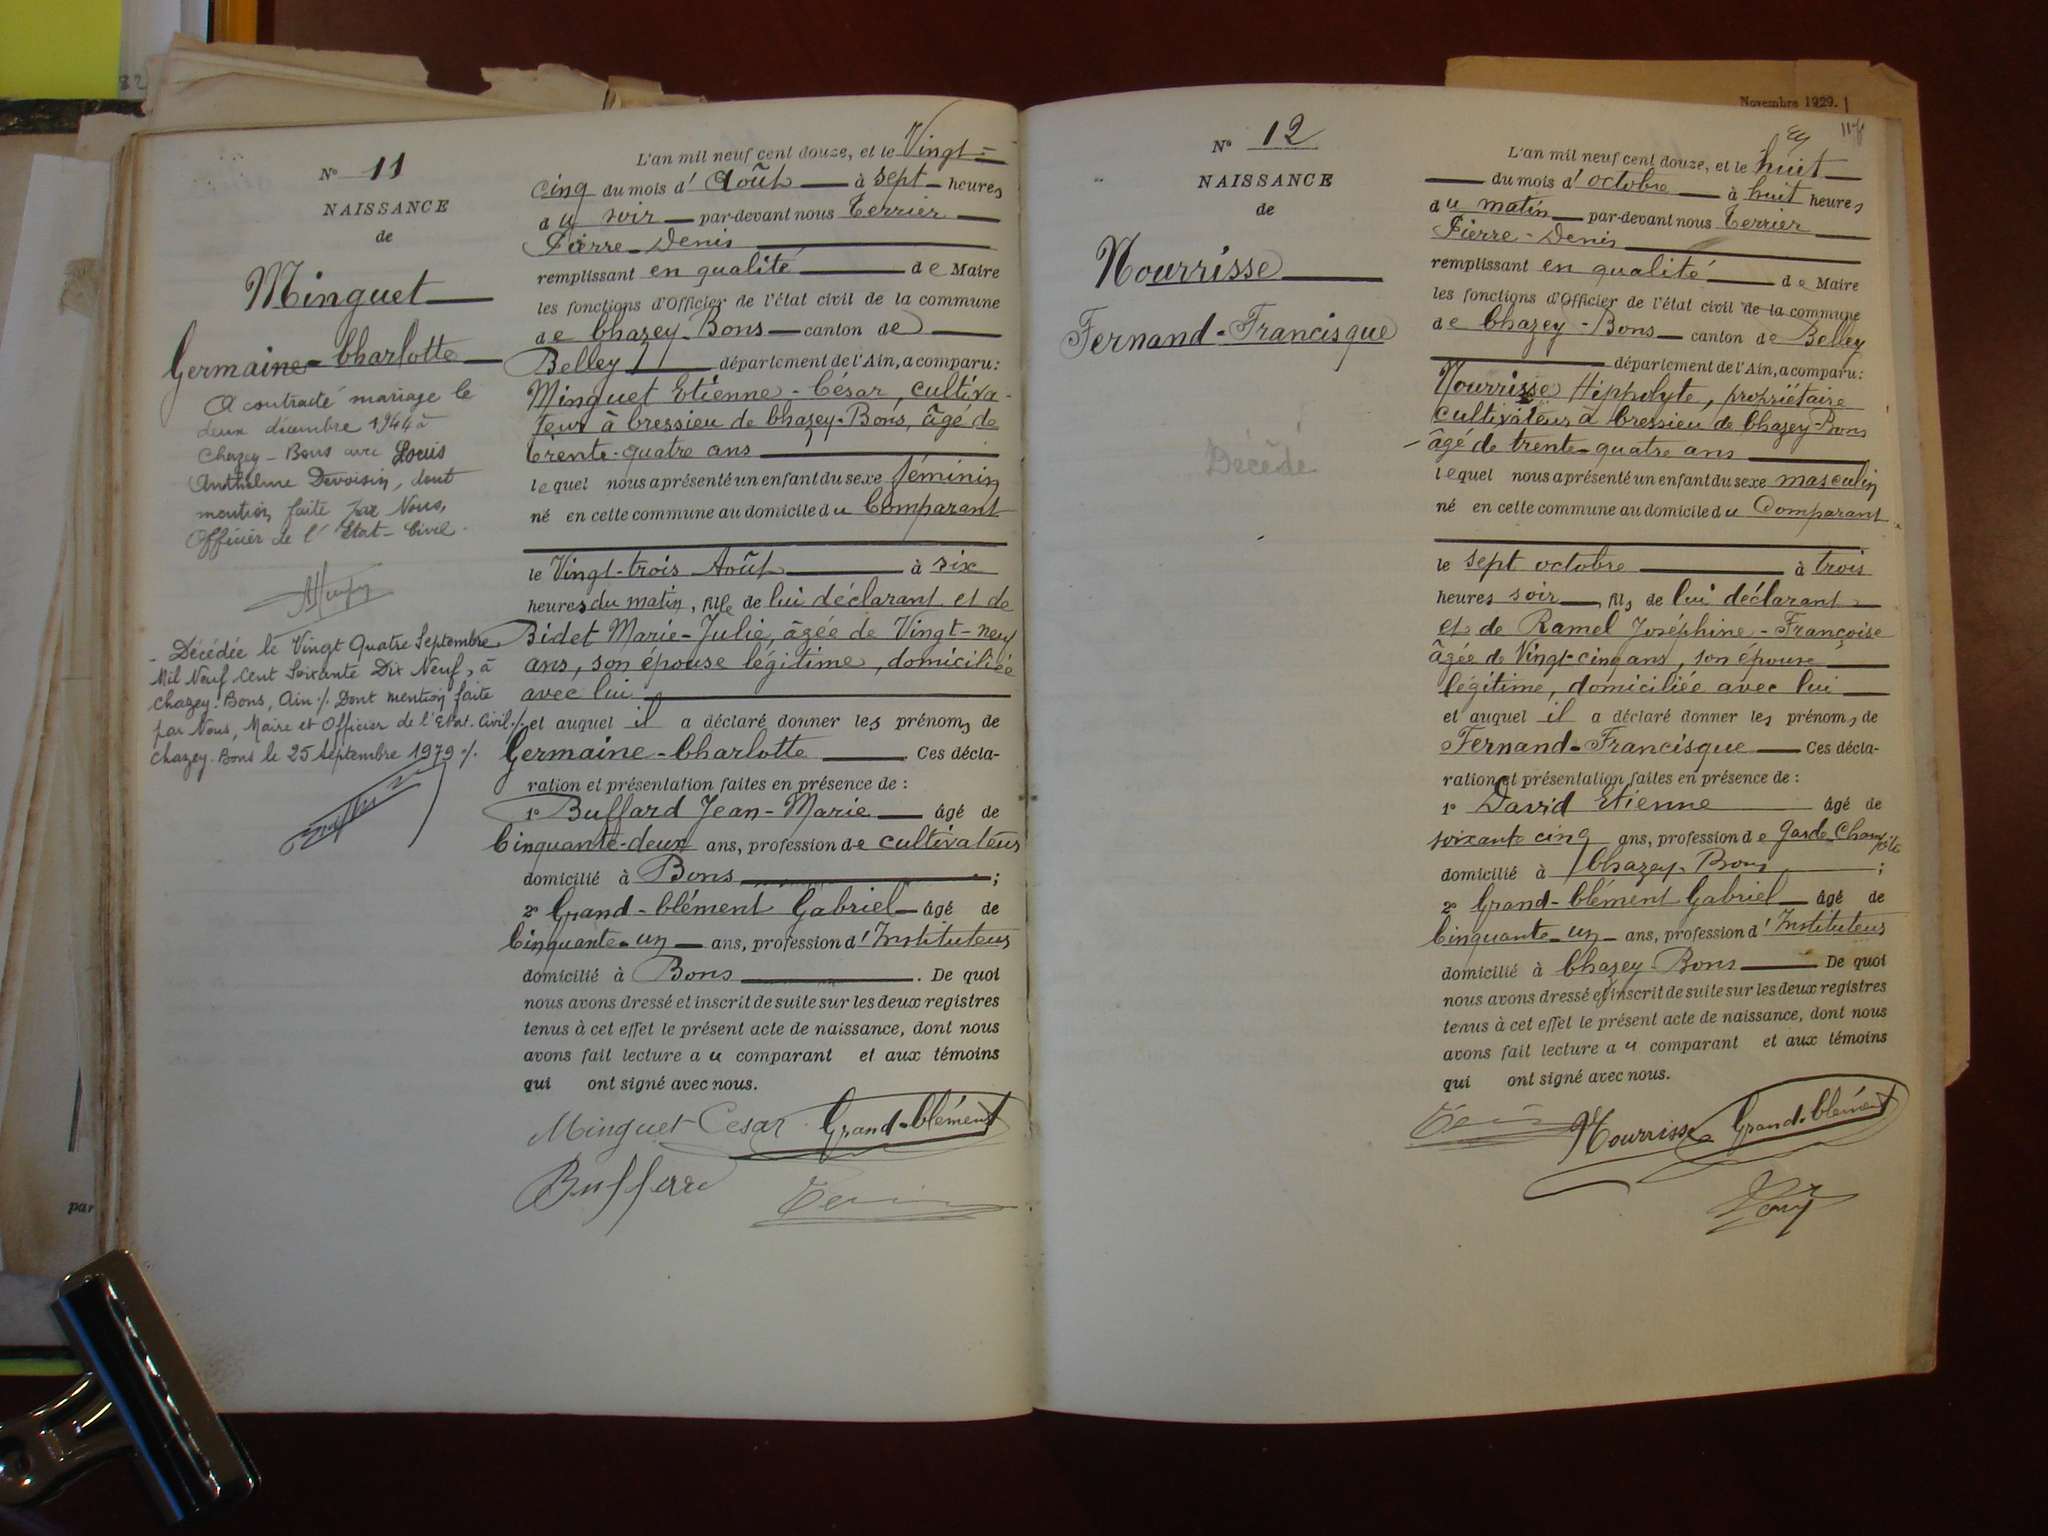 Novembre 1929.
N° 11
NAISSANCE
de
Minguet
Germaine-Charlotte
A contracté mariage le
deux décembre 1944 à
Chazey-Bons avec Louis
Anthelme Devoisin, dont
mention faite par Nous,
Officier de l'Etat-Civil.
- Décédée le Vingt Quatre Septembre
Mil Neuf Cent Soixante Dix Neuf, à
Chazey-Bons, Ain ./. Dont mention faite
par Nous, Maire et Officier de l'Etat-Civil ./.
Chazey-Bons le 25 Septembre 1979 ./.
L'an mil neuf cent douze, et le Vingt-
cinq du mois d'Août à sept heures
du soir par-devant nous Terrier
Pierre-Denis
remplissant en qualité de Maire
les fonctions d'Officier de l'état civil de la commune
de Chazey-Bons canton de
Belley département de l'Ain, a comparu:
Minguet Etienne-César, cultiva-
teur à Cressieu de Chazey-Bons, âgé de
trente-quatre ans
lequel nous a présenté un enfant du sexe féminin
né en cette commune au domicile du Comparant
le Vingt-trois Août à six
heures du matin, fille de lui déclarant et de
Bidet Marie-Julie, âgée de Vingt-neuf
ans, son épouse légitime, domiciliée
avec lui
et auquel il a déclaré donner les prénoms de
Germaine-Charlotte. Ces décla-
ration et présentation faites en présence de :
1° Buffard Jean-Marie âgé de
Cinquante-deux ans, profession de cultivateur
domicilié à Bons ;
2° Grand-Clément Gabriel âgé de
Cinquante-un ans, profession d'Instituteur
domicilié à Bons. De quoi
nous avons dressé et inscrit de suite sur les deux registres
tenus à cet effet le présent acte de naissance, dont nous
avons fait lecture au comparant et aux témoins
qui ont signé avec nous.
Minguet Cesar Grand-Clément
N° 12
NAISSANCE
de
Nourrisse
Fernand-Francisque
Décédé
L'an mil neuf cent douze, et le huit
du mois d'octobre à huit heures
du matin par-devant nous Terrier
Pierre-Denis
remplissant en qualité de Maire
les fonctions d'Officier de l'état civil de la commune
de Chazey-Bons canton de Belley
département de l'Ain, a comparu:
Nourrisse Hippolyte, propriétaire
cultivateur à Cressieu de Chazey-Bons
âgé de trente-quatre ans
lequel nous a présenté un enfant du sexe masculin
né en cette commune au domicile du Comparant
le sept octobre à trois
heures soir, fils de lui déclarant
et de Ramel Joséphine-Françoise
âgée de Vingt-cinq ans, son épouse
légitime, domiciliée avec lui
et auquel il a déclaré donner les prénoms de
Fernand-Francisque Ces décla-
ration et présentation faites en présence de :
1° David Etienne âgé de
soixante cinq ans, profession de garde Champêtre
domicilié à Chazey-Bons ;
2° Grand-Clément Gabriel âgé de
Cinquante-un ans, profession d'Instituteur
domicilié à Chazey-Bons De quoi
nous avons dressé et inscrit de suite sur les deux registres
tenus à cet effet le présent acte de naissance, dont nous
avons fait lecture au comparant et aux témoins
qui ont signé avec nous.
Nourrisse Grand-Clément